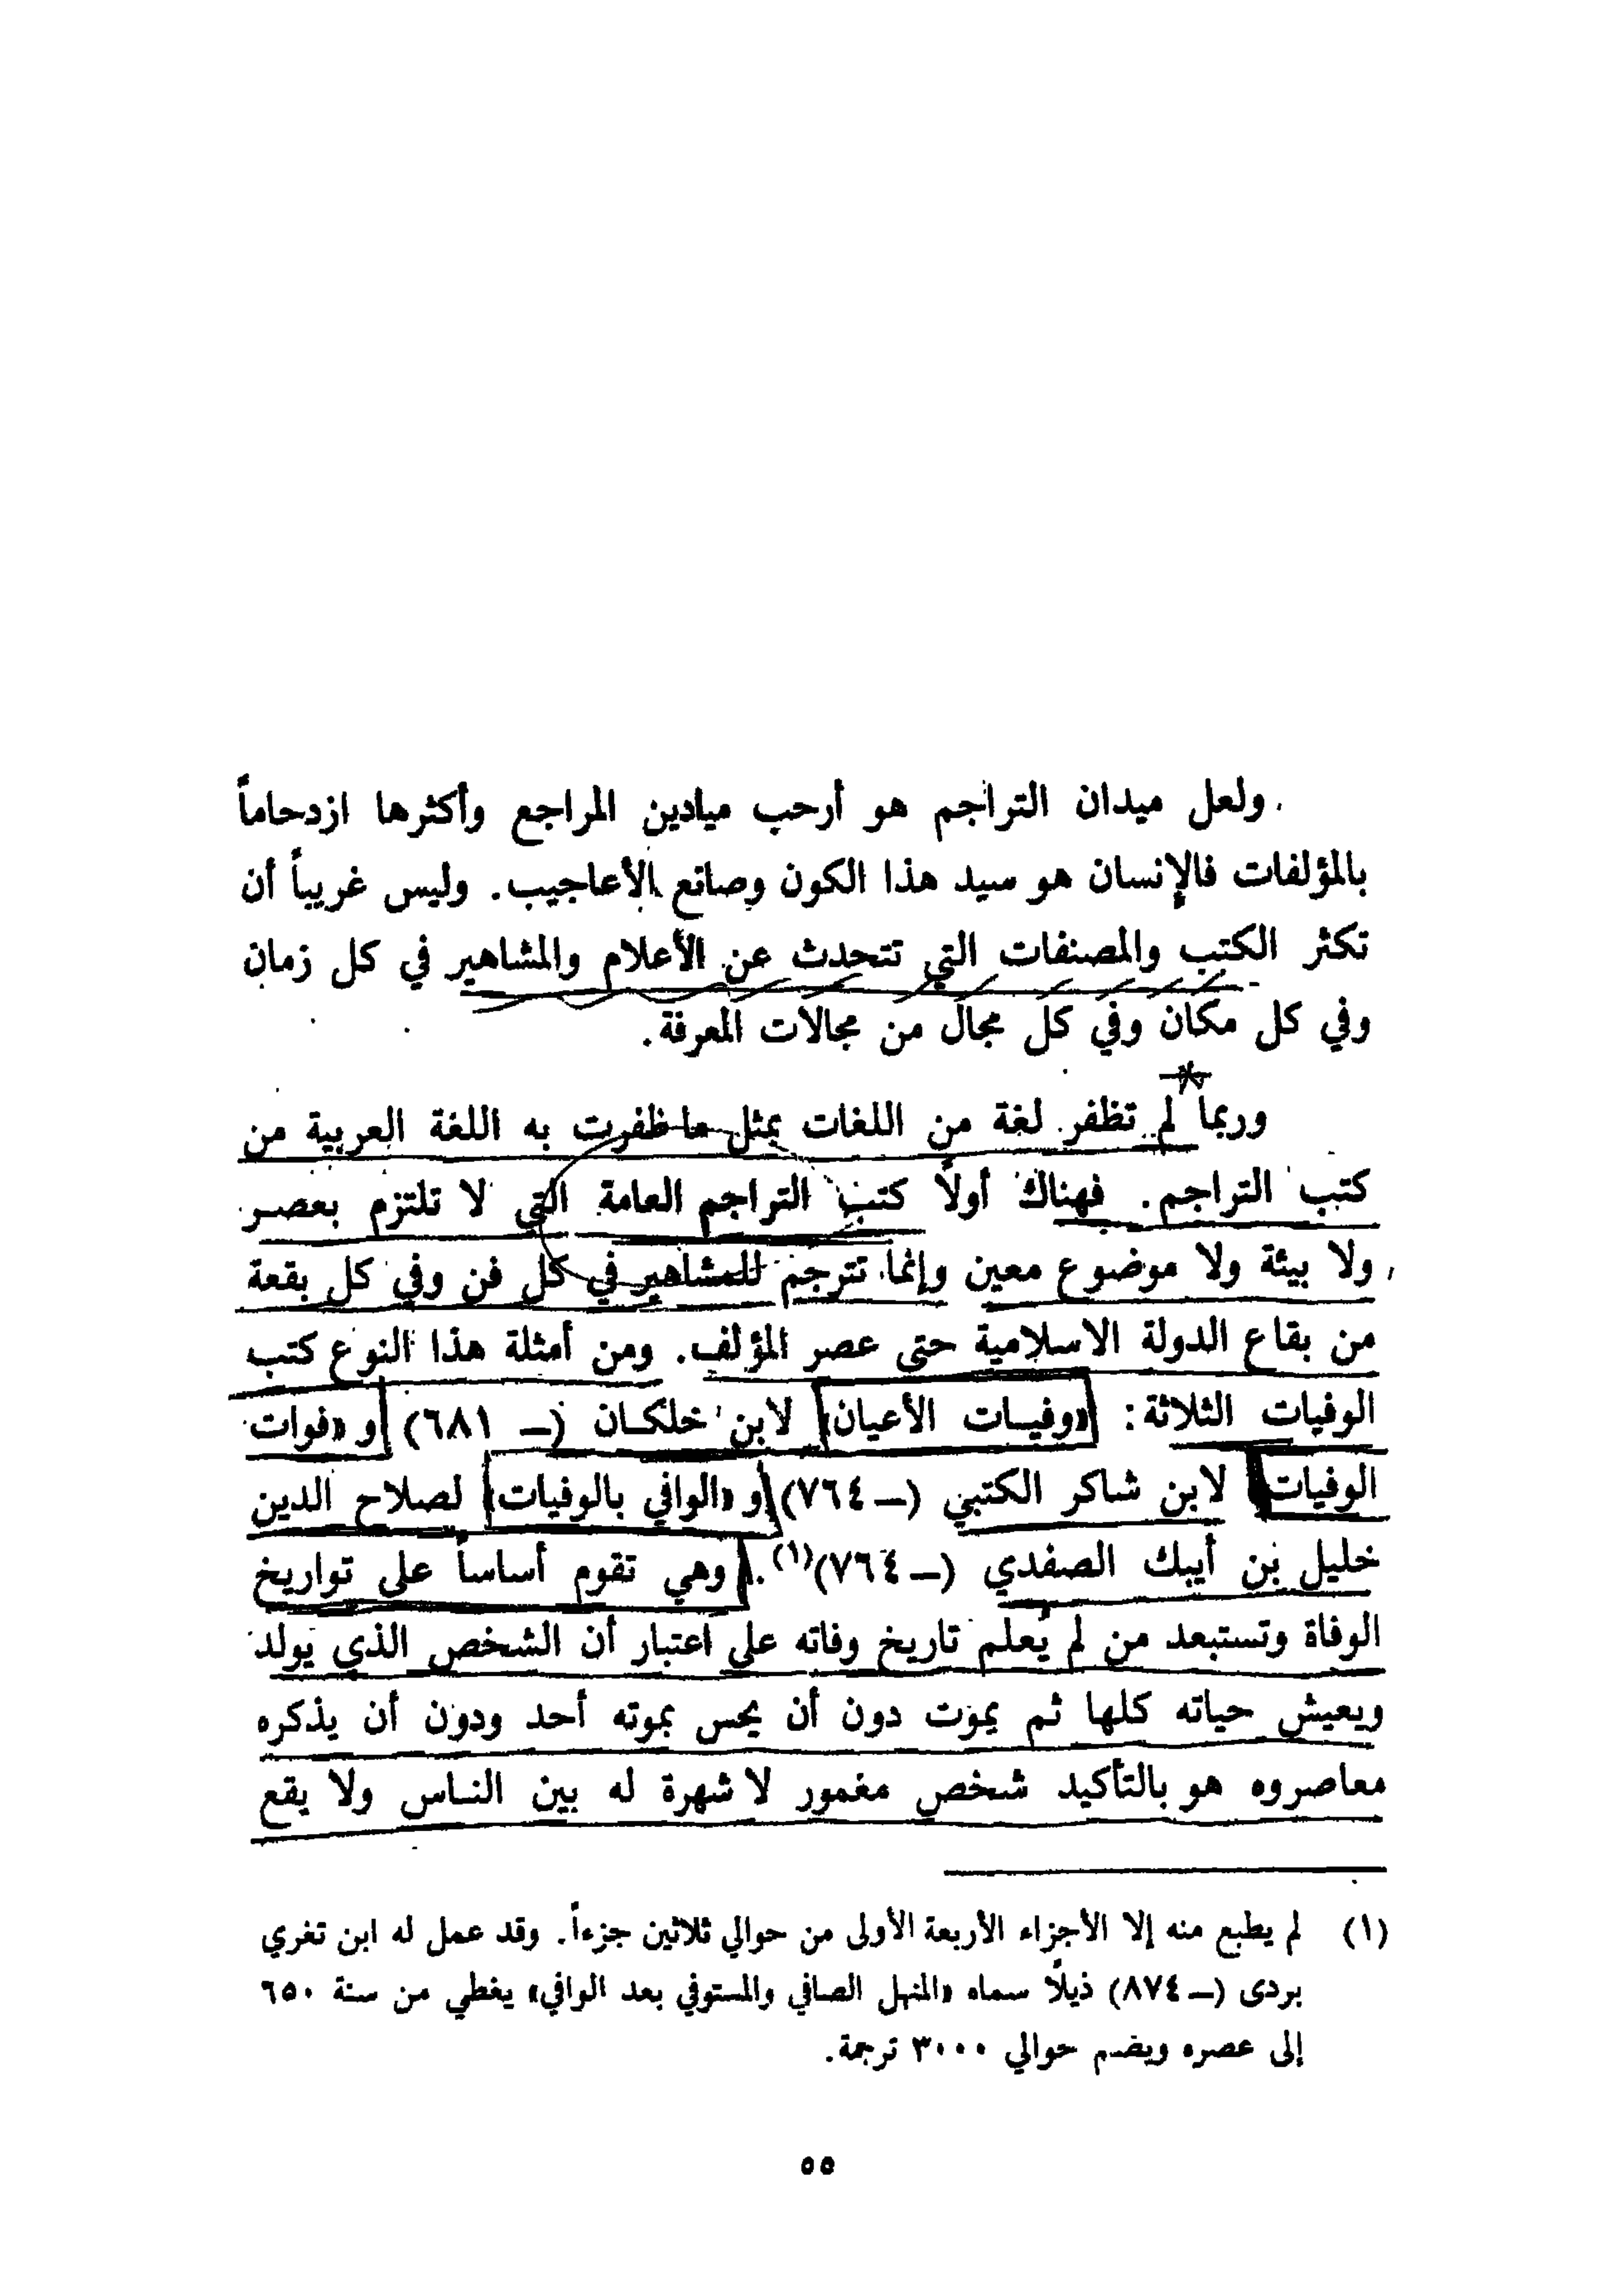 ولعل ميدان التراجم هو أرحب ميادين المراجع وأكثرها ازدحاماً
بالمؤلفات فالإنسان هو سيد هذا الكون وصانع الأعاجيب. وليس غريباً أن
تكثر الكتب والمصنفات التي تتحدث عن الأعلام والمشاهير في كل زمان
وفي كل مكان وفي كل مجال من مجالات المعرفة.
وربما لم تظفر لغة من اللغات بمثل ما ظفرت به اللغة العربية من
كتب التراجم. فهناك أولاً كتب التراجم العامة التي لا تلتزم بعصر
ولا بيئة ولا موضوع معين وإنما تترجم للمشاهير في كل فن وفي كل بقعة
من بقاع الدولة الاسلامية حتى عصر المؤلف. ومن أمثلة هذا النوع كتب
الوفيات الثلاثة: «وفيات الأعيان» لابن خلكان (ـ ٦٨١) و «فوات
الوفيات» لابن شاكر الكتبي (ـ ٧٦٤) و «الوافي بالوفيات» لصلاح الدين
خليل بن أيبك الصفدي (ـ ٧٦٤)(١). وهي تقوم أساساً على تواريخ
الوفاة وتستبعد من لم يُعلم تاريخ وفاته على اعتبار أن الشخص الذي يولد
ويعيش حياته كلها ثم يموت دون أن يحس بموته أحد ودون أن يذكره
معاصروه هو بالتأكيد شخص مغمور لا شهرة له بين الناس ولا يقع
(١) لم يطبع منه إلا الأجزاء الأربعة الأولى من حوالي ثلاثين جزءاً. وقد عمل له ابن تغري
بردى (ـ ٨٧٤) ذيلًا سماه «المنهل الصافي والمستوفي بعد الوافي» يغطي من سنة ٦٥٠
إلى عصره ويضم حوالي ٣٠٠٠ ترجمة.
٥٥